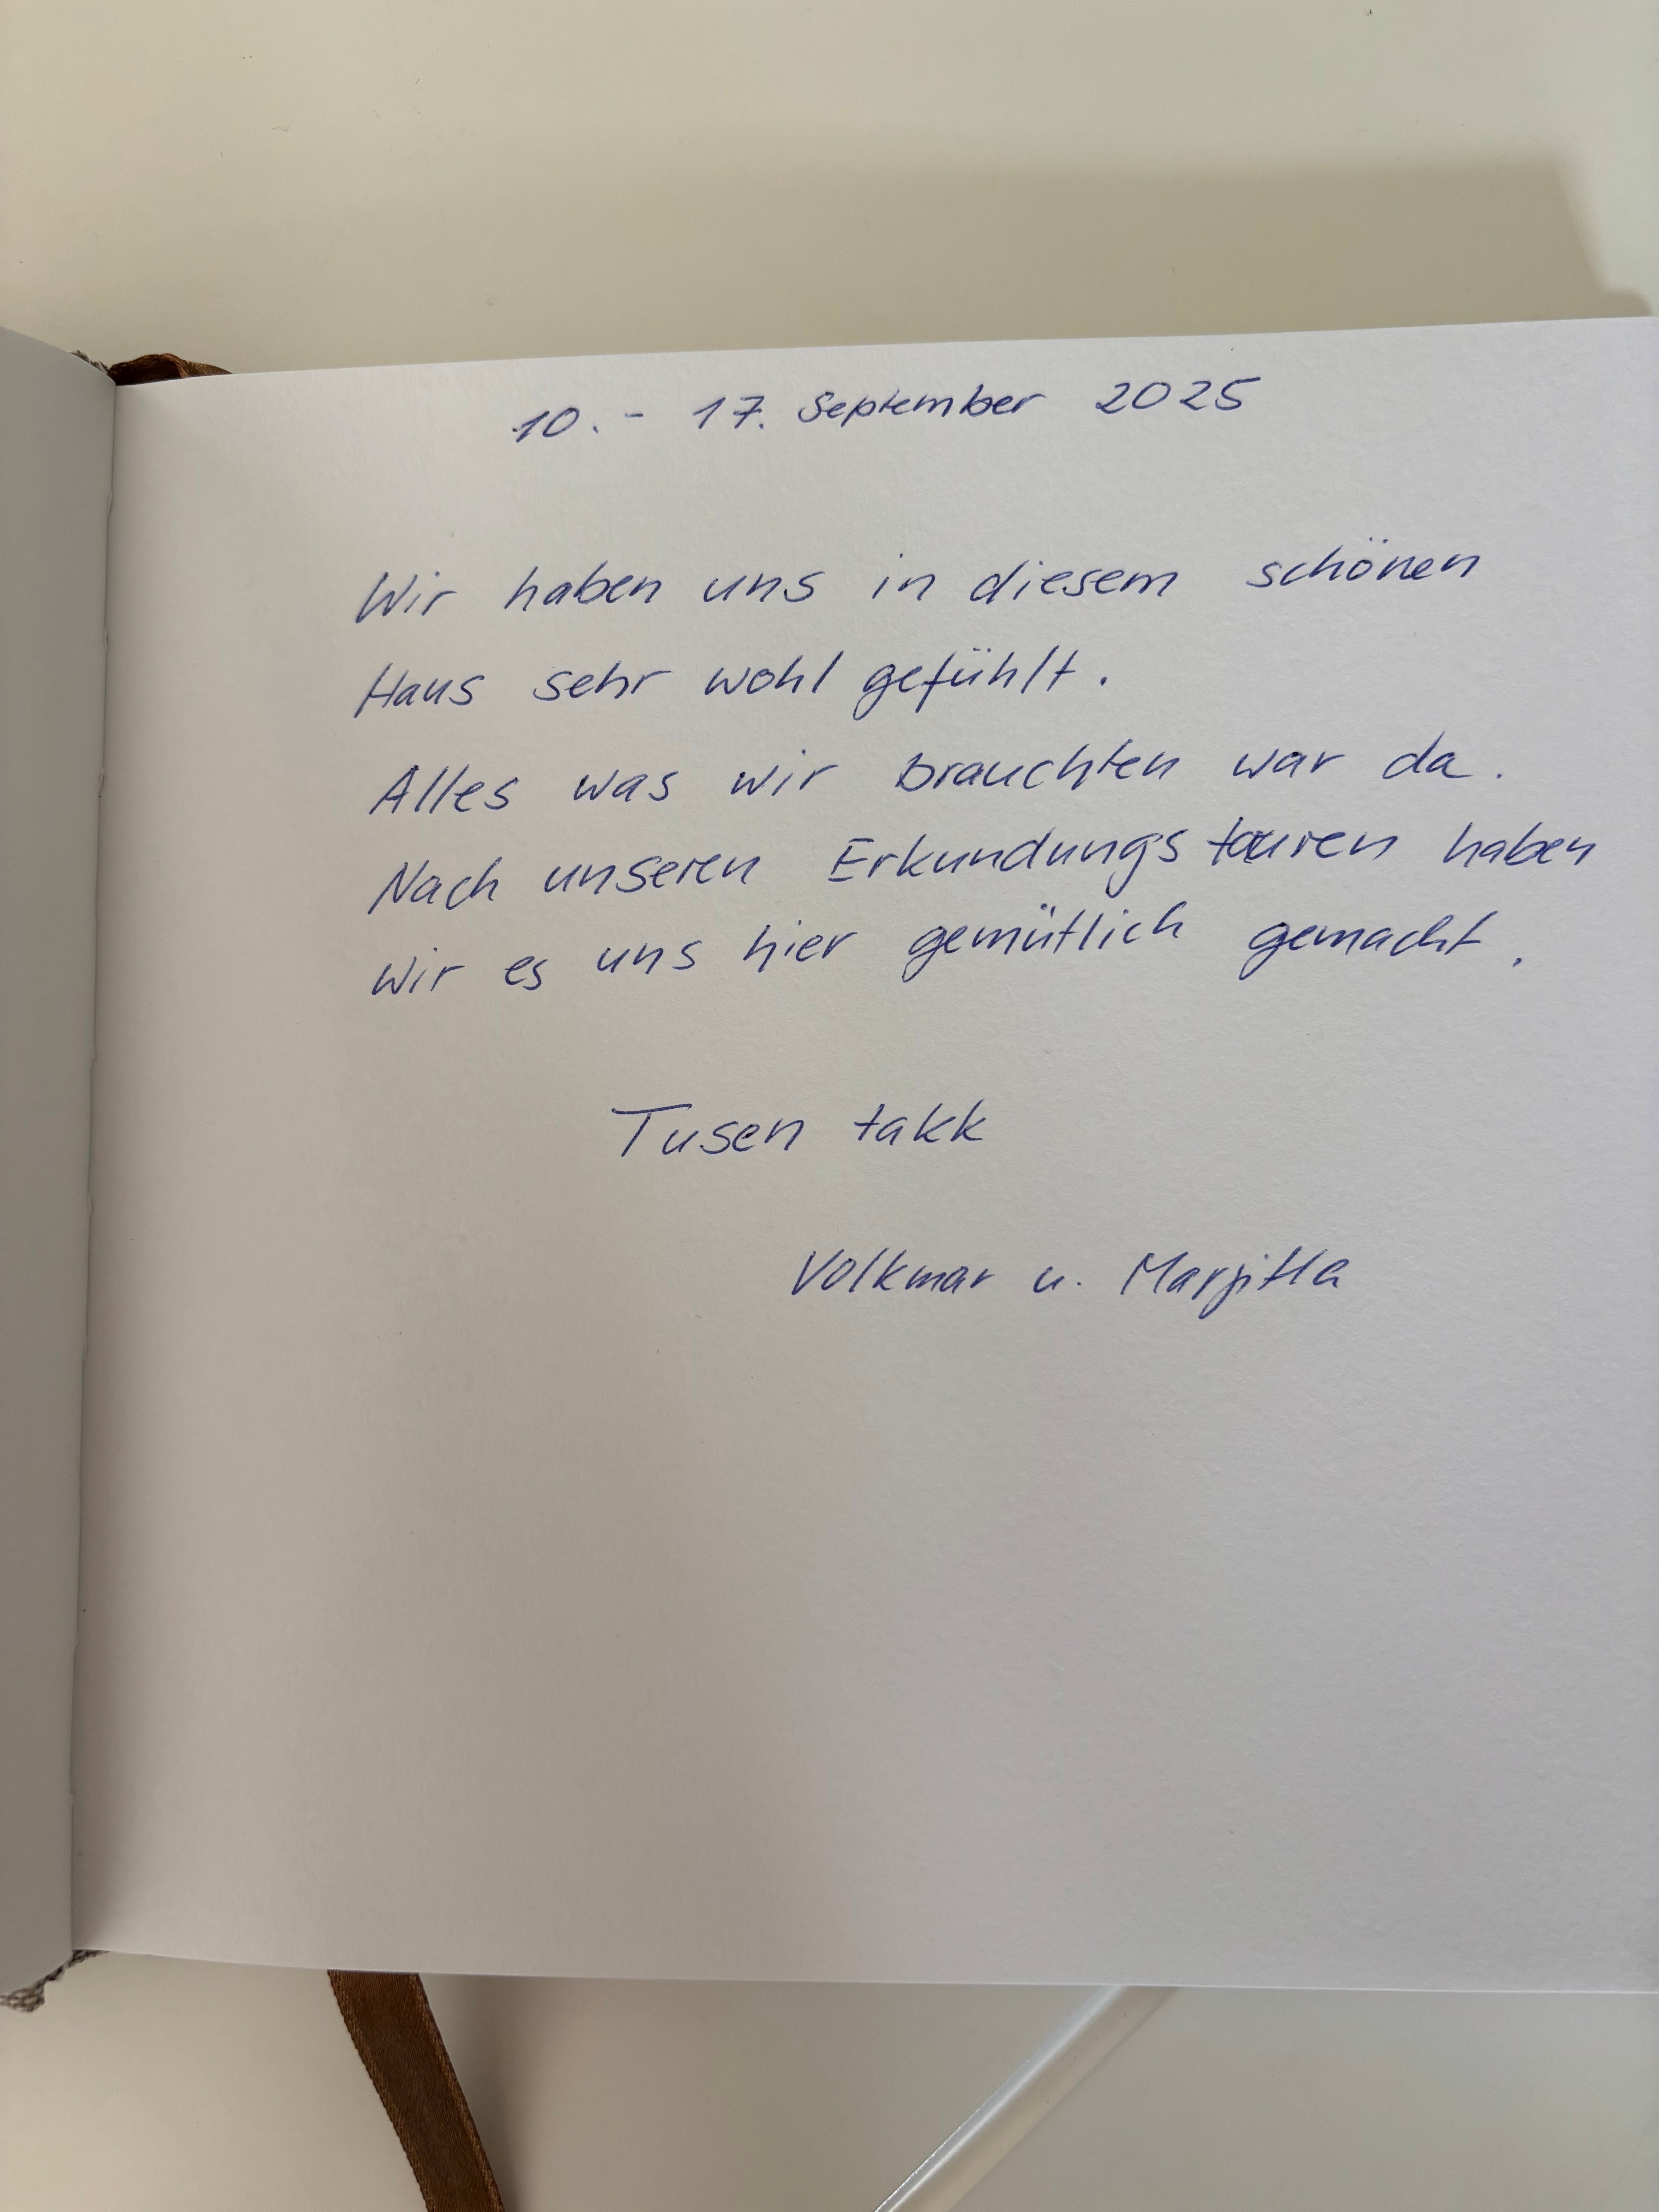 10. - 17. September 2025
Wir haben uns in diesem schönen
Haus sehr wohl gefühlt.
Alles was wir brauchten war da.
Nach unseren Erkundungstouren haben
wir es uns hier gemütlich gemacht.
Tusen takk
Volkmar u.